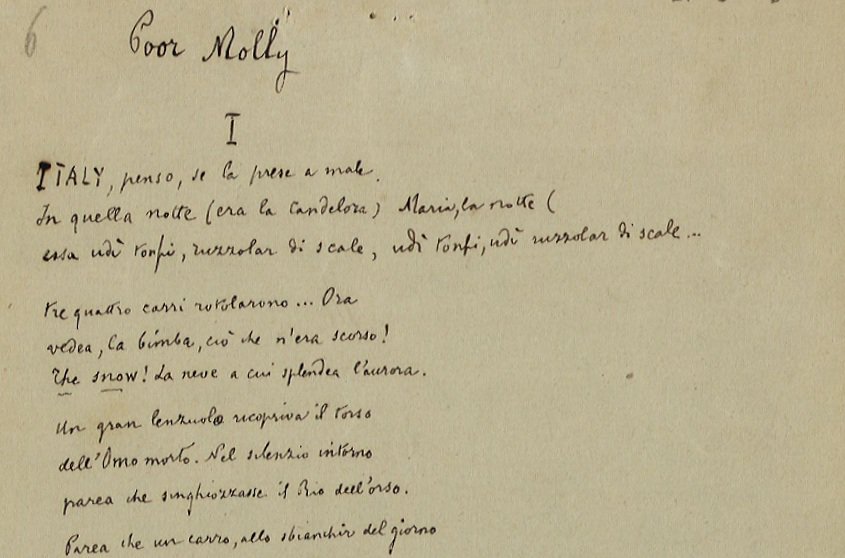 6
Poor Molly
I
ITALY, penso, se la prese a male.
In quella notte (era la Candelora) Maria, la notte (
essa udì tonfi, ruzzolar di scale, udì tonfi, udì ruzzolar di scale...
tre quattro carri rotolarono... Ora
vedea, la bimba, ciò che n'era scorso!
The snow! La neve a cui splendea l'aurora.
Un gran lenzuolo ricopriva il torso
dell'Omo morto. Nel silenzio intorno
parea che singhiozzasse il Rio dell'orso.
Parea che un carro, allo sbianchir del giorno